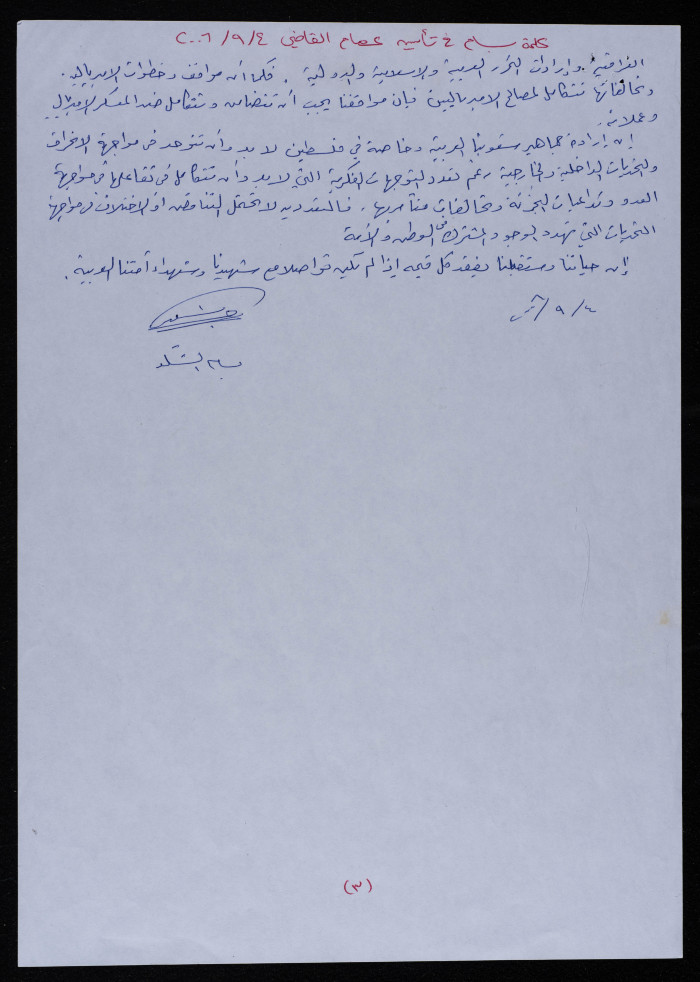 كلمة بسام في تأبين عصام القاضي ٤/ ٩/ ٢٠٠٦
العراقية. وإرادات التحرر العربية والإسلامية والدولية. فكما أن مواقف وخطوات الإمبريالية.
وتحالفاتها تتكامل لمصالح الامبرياليين فإن مواقفنا يجب أن تتضامن وتتكامل ضد المعسكر الإمبريالي
وعملائه.
إن إرادة جماهير شعوبنا العربية وخاصة في فلسطين لا بد وأن تتوحد في مواجهة الانحراف
والتحديات الداخلية والخارجية رغم تعدد التوجهات الفكرية التي لا بد وأن تتكامل في تفاعلها في مواجهة
العدو وتداعيات التجزئة وتحالفات متآمريها. فالتعددية لا تحتمل التناقض او الاختلاف في مواجهة
التحديات التي تهدد الوجود المشترك في الوطن والأمة
إن حياتنا ومستقبلنا يفقد كل قيمه إذا لم تكن تواصلا مع شهيدنا وشهداء أمتنا العربية.
٤/ ٩/
بسام الشكعة
(٣)